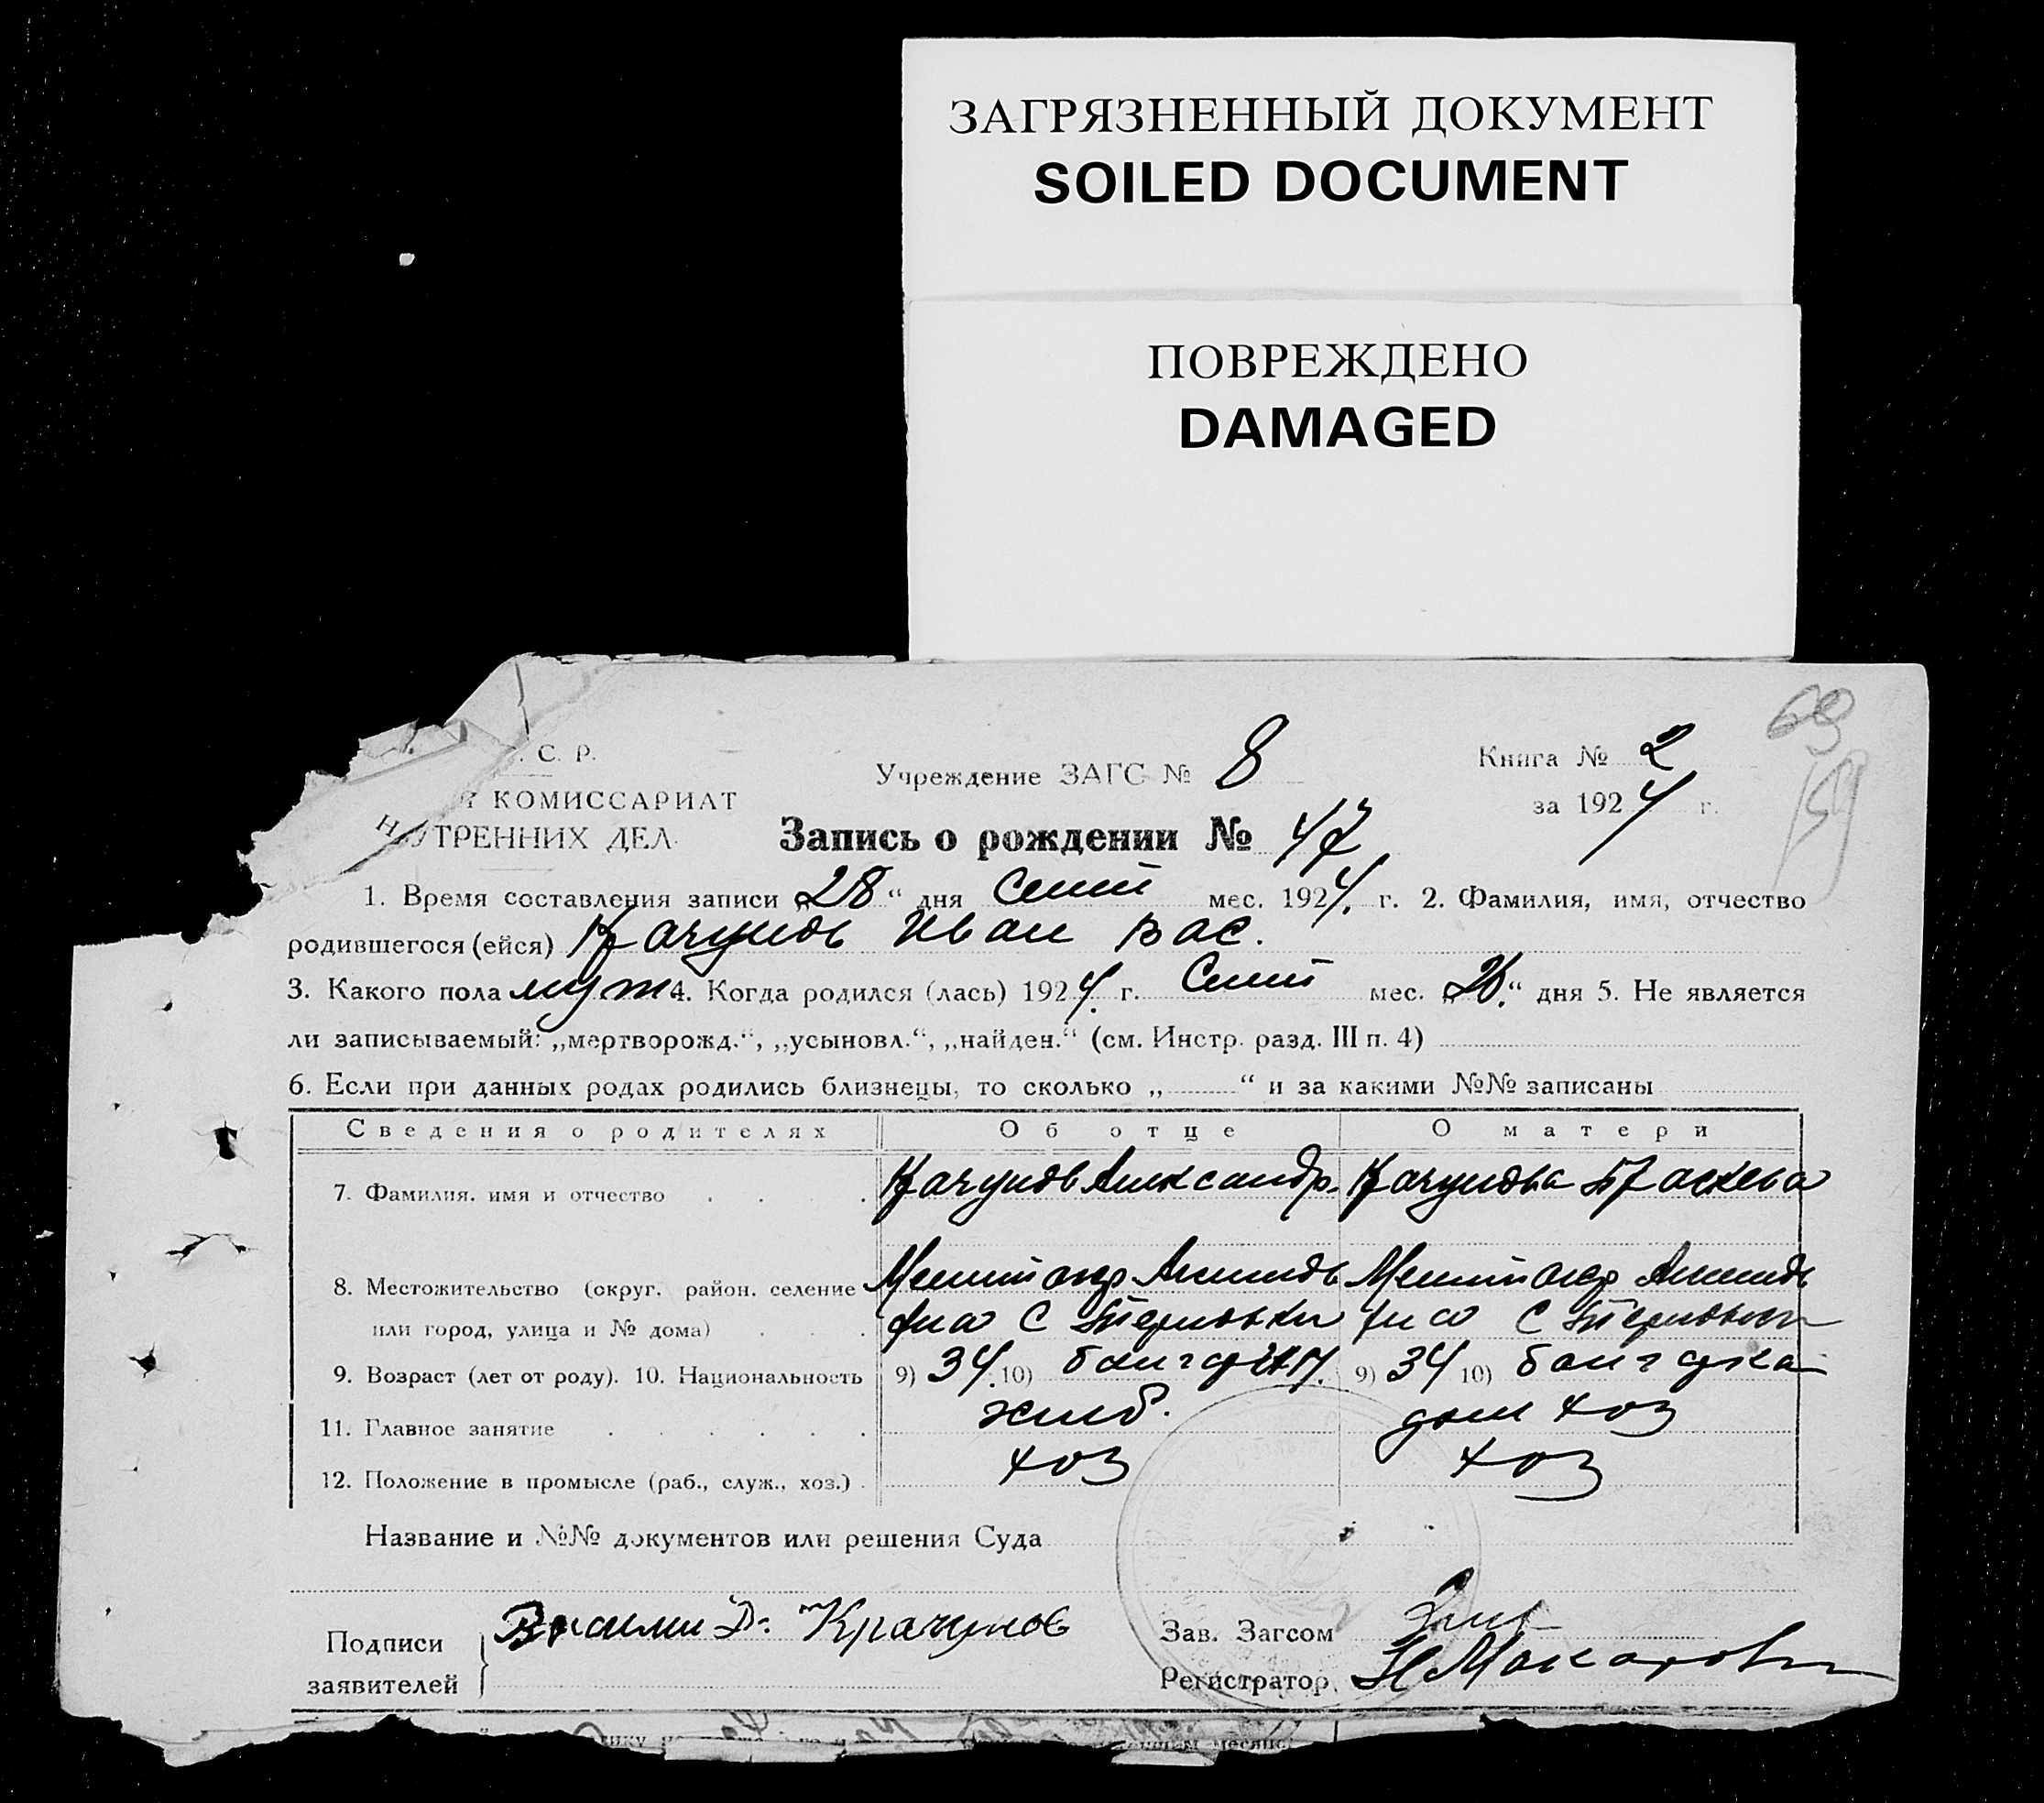 ЗАГРЯЗНЕННЫЙ ДОКУМЕНТ
SOILED DOCUMENT
ПОВРЕЖДЕНО
DAMAGED
69
. С. Р.
Учреждение ЗАГС № 8
Книга № 2
КОМИССАРИАТ
за 1924 г.
УТРЕННИХ ДЕЛ
Запись о рождении № 47
1. Время составления записи „28“ дня Сент мес. 1924. г. 2. Фамилия, имя, отчество
родившегося (ейся) Иван Вас.
3. Какого пола муж 4. Когда родился (лась) 1924. г. Сент мес. „26.“ дня 5. Не является
ли записываемый: „мертворожд.“, „усыновл.“, „найден.“ (см. Инстр. разд. III п. 4)
6. Если при данных родах родились близнецы, то сколько „ “ и за какими №№ записаны
Сведения о родителях Об отце О матери
7. Фамилия, имя и отчество . . . Александр.
8. Местожительство (округ, район, селение Мелит окр Мелит окр
или город, улица и № дома) . . . с Терновка с Терновка
9. Возраст (лет от роду). 10. Национальность 9) 34. 10) 9) 34 10) болгарка
11. Главное занятие . . . . . . хлеб. дом хоз
12. Положение в промысле (раб., служ., хоз.) . хоз хоз
Название и №№ документов или решения Суда
Подписи заявителей Васили Д. Крачунов
Зав. Загсом
Регистратор.